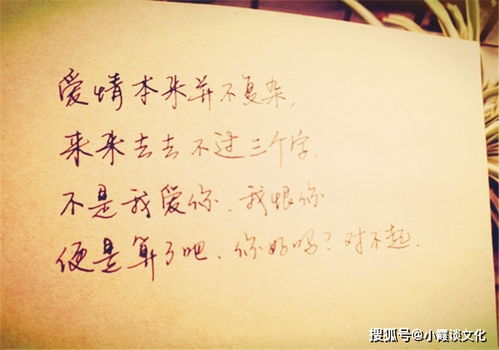 爱情本来并不复杂,
来来去去不过三个字.
不是我爱你、我恨你
便是算了吧、你好吗?对不起.
搜狐号@小霞谈文化